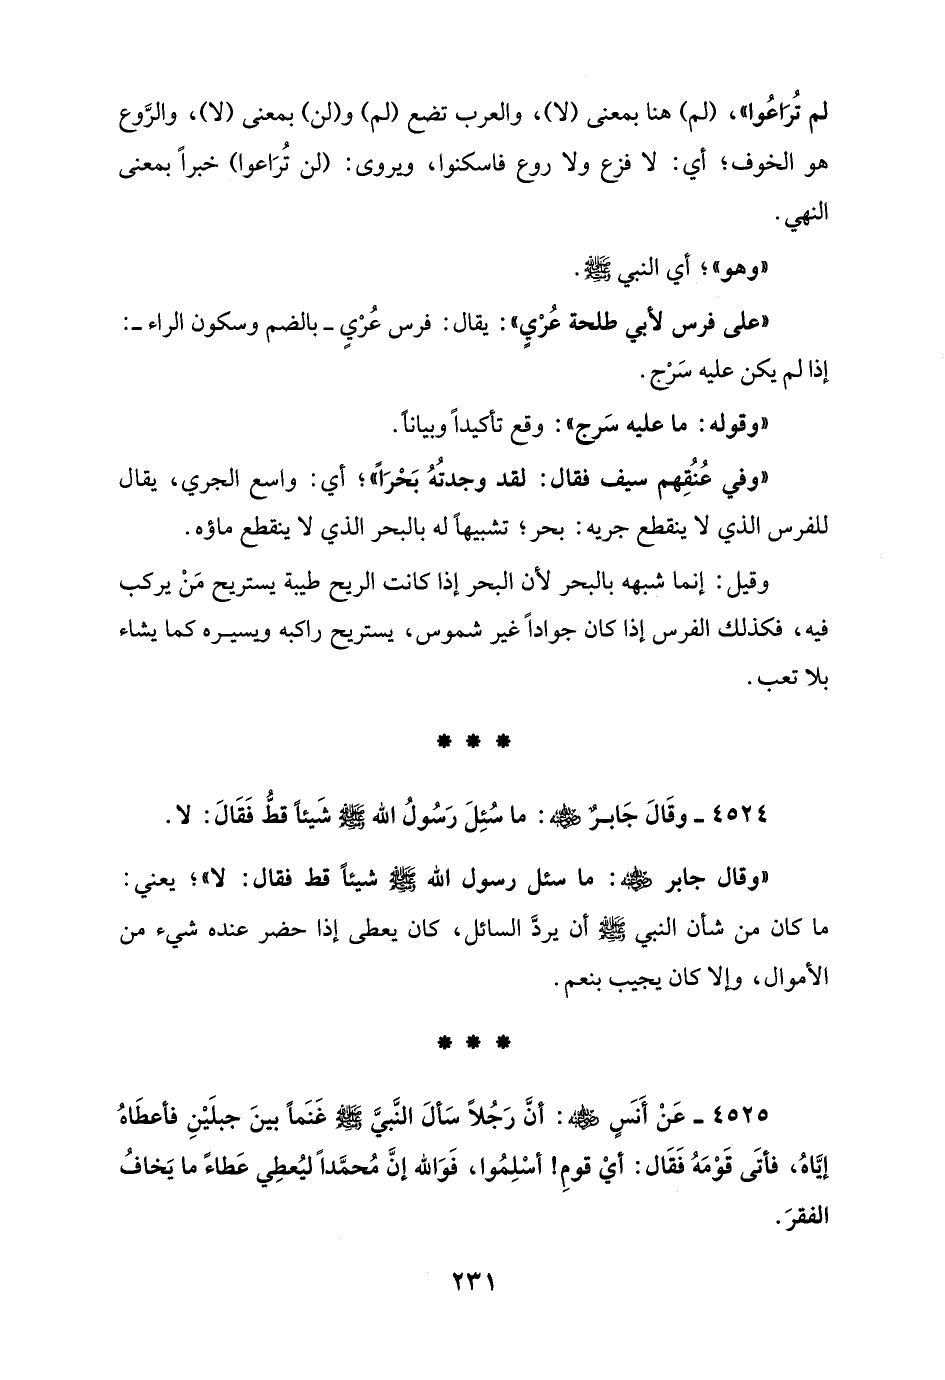 لم تُرَاعُوا»، (لم) هنا بمعنى (لا)، والعرب تضع (لم) و(لن) بمعنى (لا)، والرَّوع
هو الخوف؛ أي: لا فزع ولا روع فاسكنوا، ويروى: (لن تُرَاعوا) خبراً بمعنى
النهي.
«وهو»؛ أي النبي ﷺ.
«على فرس لأبي طلحة عُرْيٍ»: يقال: فرس عُرْيٍ ـ بالضم وسكون الراء ـ:
إذا لم يكن عليه سَرْج.
«وقوله: ما عليه سَرج»: وقع تأكيداً وبياناً.
«وفي عُنُقِهم سيف فقال: لقد وجدتُهُ بَحْرَاً»؛ أي: واسع الجري، يقال
للفرس الذي لا ينقطع جريه: بحر؛ تشبيهاً له بالبحر الذي لا ينقطع ماؤه.
وقيل: إنما شبهه بالبحر لأن البحر إذا كانت الريح طيبة يستريح مَنْ يركب
فيه، فكذلك الفرس إذا كان جواداً غير شموس، يستريح راكبه ويسيره كما يشاء
بلا تعب.
* * *
٤٥٢٤ ـ وقَالَ جَابرٌ ﷺ: ما سُئِلَ رَسُولُ الله ﷺ شَيئاً قطُّ فَقَالَ: لا.
«وقال جابر ﷺ: ما سئل رسول الله ﷺ شيئاً قط فقال: لا»؛ يعني:
ما كان من شأن النبي ﷺ أن يردَّ السائل، كان يعطى إذا حضر عنده شيء من
الأموال، وإلا كان يجيب بنعم.
* * *
٤٥٢٥ ـ عَنْ أَنَسٍ ﷺ: أنَّ رَجُلاً سَألَ النَّبيَّ ﷺ غَنَماً بينَ جبلَيْنِ فأعطَاهُ
إيَّاهُ، فأتَى قَوْمَهُ فَقَال: أيْ قومِ! أسْلِمُوا، فَوَالله إنَّ مُحمَّداً ليُعطِي عَطاءً ما يَخافُ
الفقرَ.
٢٣١